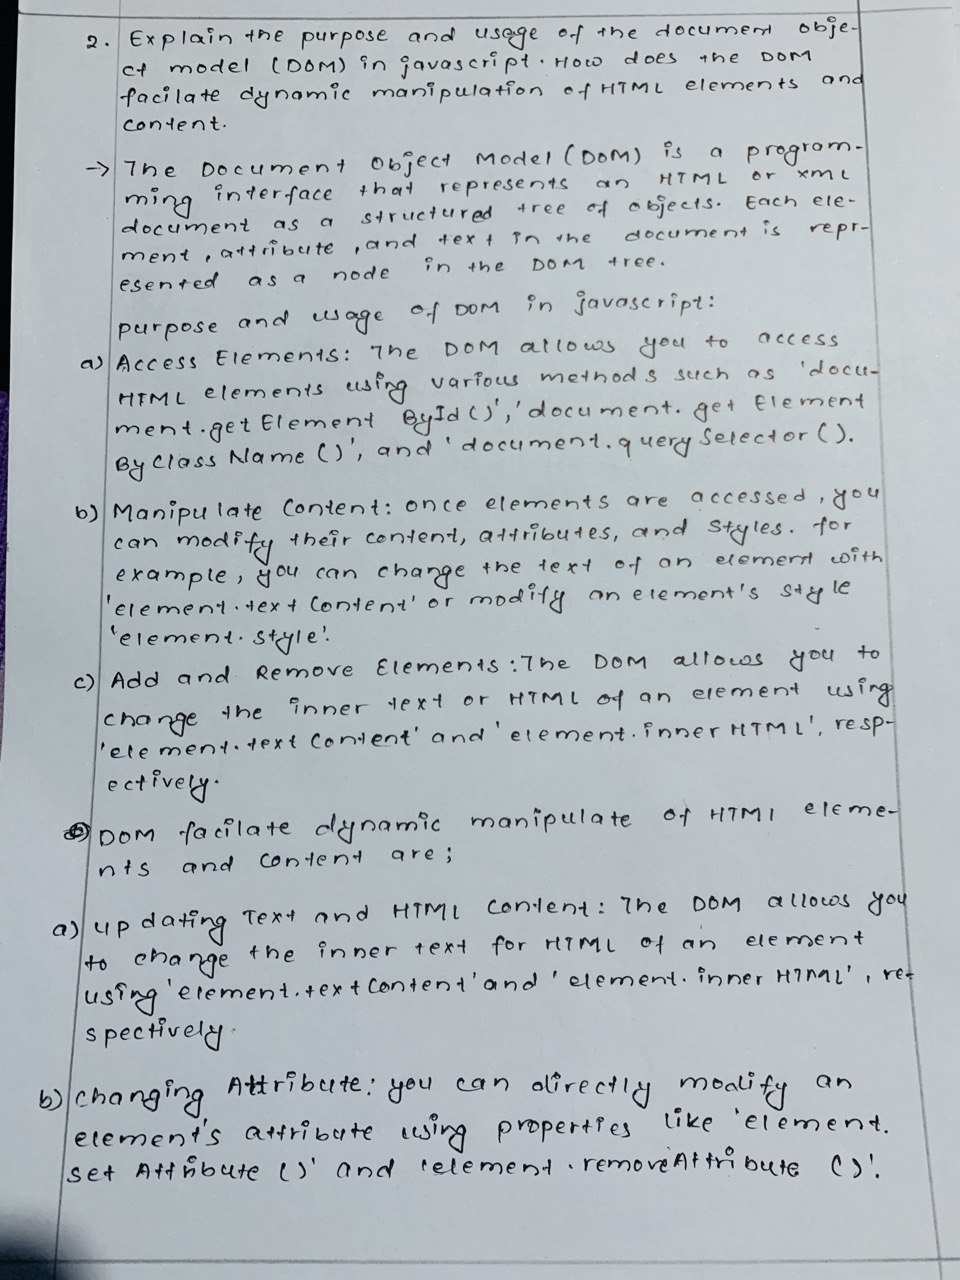 2. Explain the purpose and usage of the document obje-
ct model (DOM) in javascript. How does the DOM
facilate dynamic manipulation of HTML elements and
content.
→ The Document Object Model (DOM) is a program-
ming interface that represents an HTML or xml
document as a structured tree of objects. Each ele-
ment, attribute, and text in the document is repr-
esented as a node in the DOM tree.
purpose and usage of DOM in javascript:
a) Access Elements: The DOM allows you to access
HTML elements using various methods such as 'docu-
ment.get Element ById ()', 'document. get Element
By Class Name ()', and 'document. query Selector ().
b) Manipulate Content: once elements are accessed, you
can modify their content, attributes, and styles. for
example, you can change the text of an element with
'element.text Content' or modify an element's style
'element. style'.
c) Add and Remove Elements: The DOM allows you to
change the inner text or HTML of an element using
'element.text Content' and 'element.inner HTML', resp-
ectively.
DOM facilate dynamic manipulate of HTMl eleme-
nts and content are;
a) up dating Text and HTML Content: The DOM allows you
to change the inner text for HTML of an element
using 'element.text Content' and 'element. inner HTML', re-
spectively.
b) changing Attribute: you can directly modify an
element's attribute using properties like 'element.
set Attribute ()' and 'element. remove Attribute ()'.